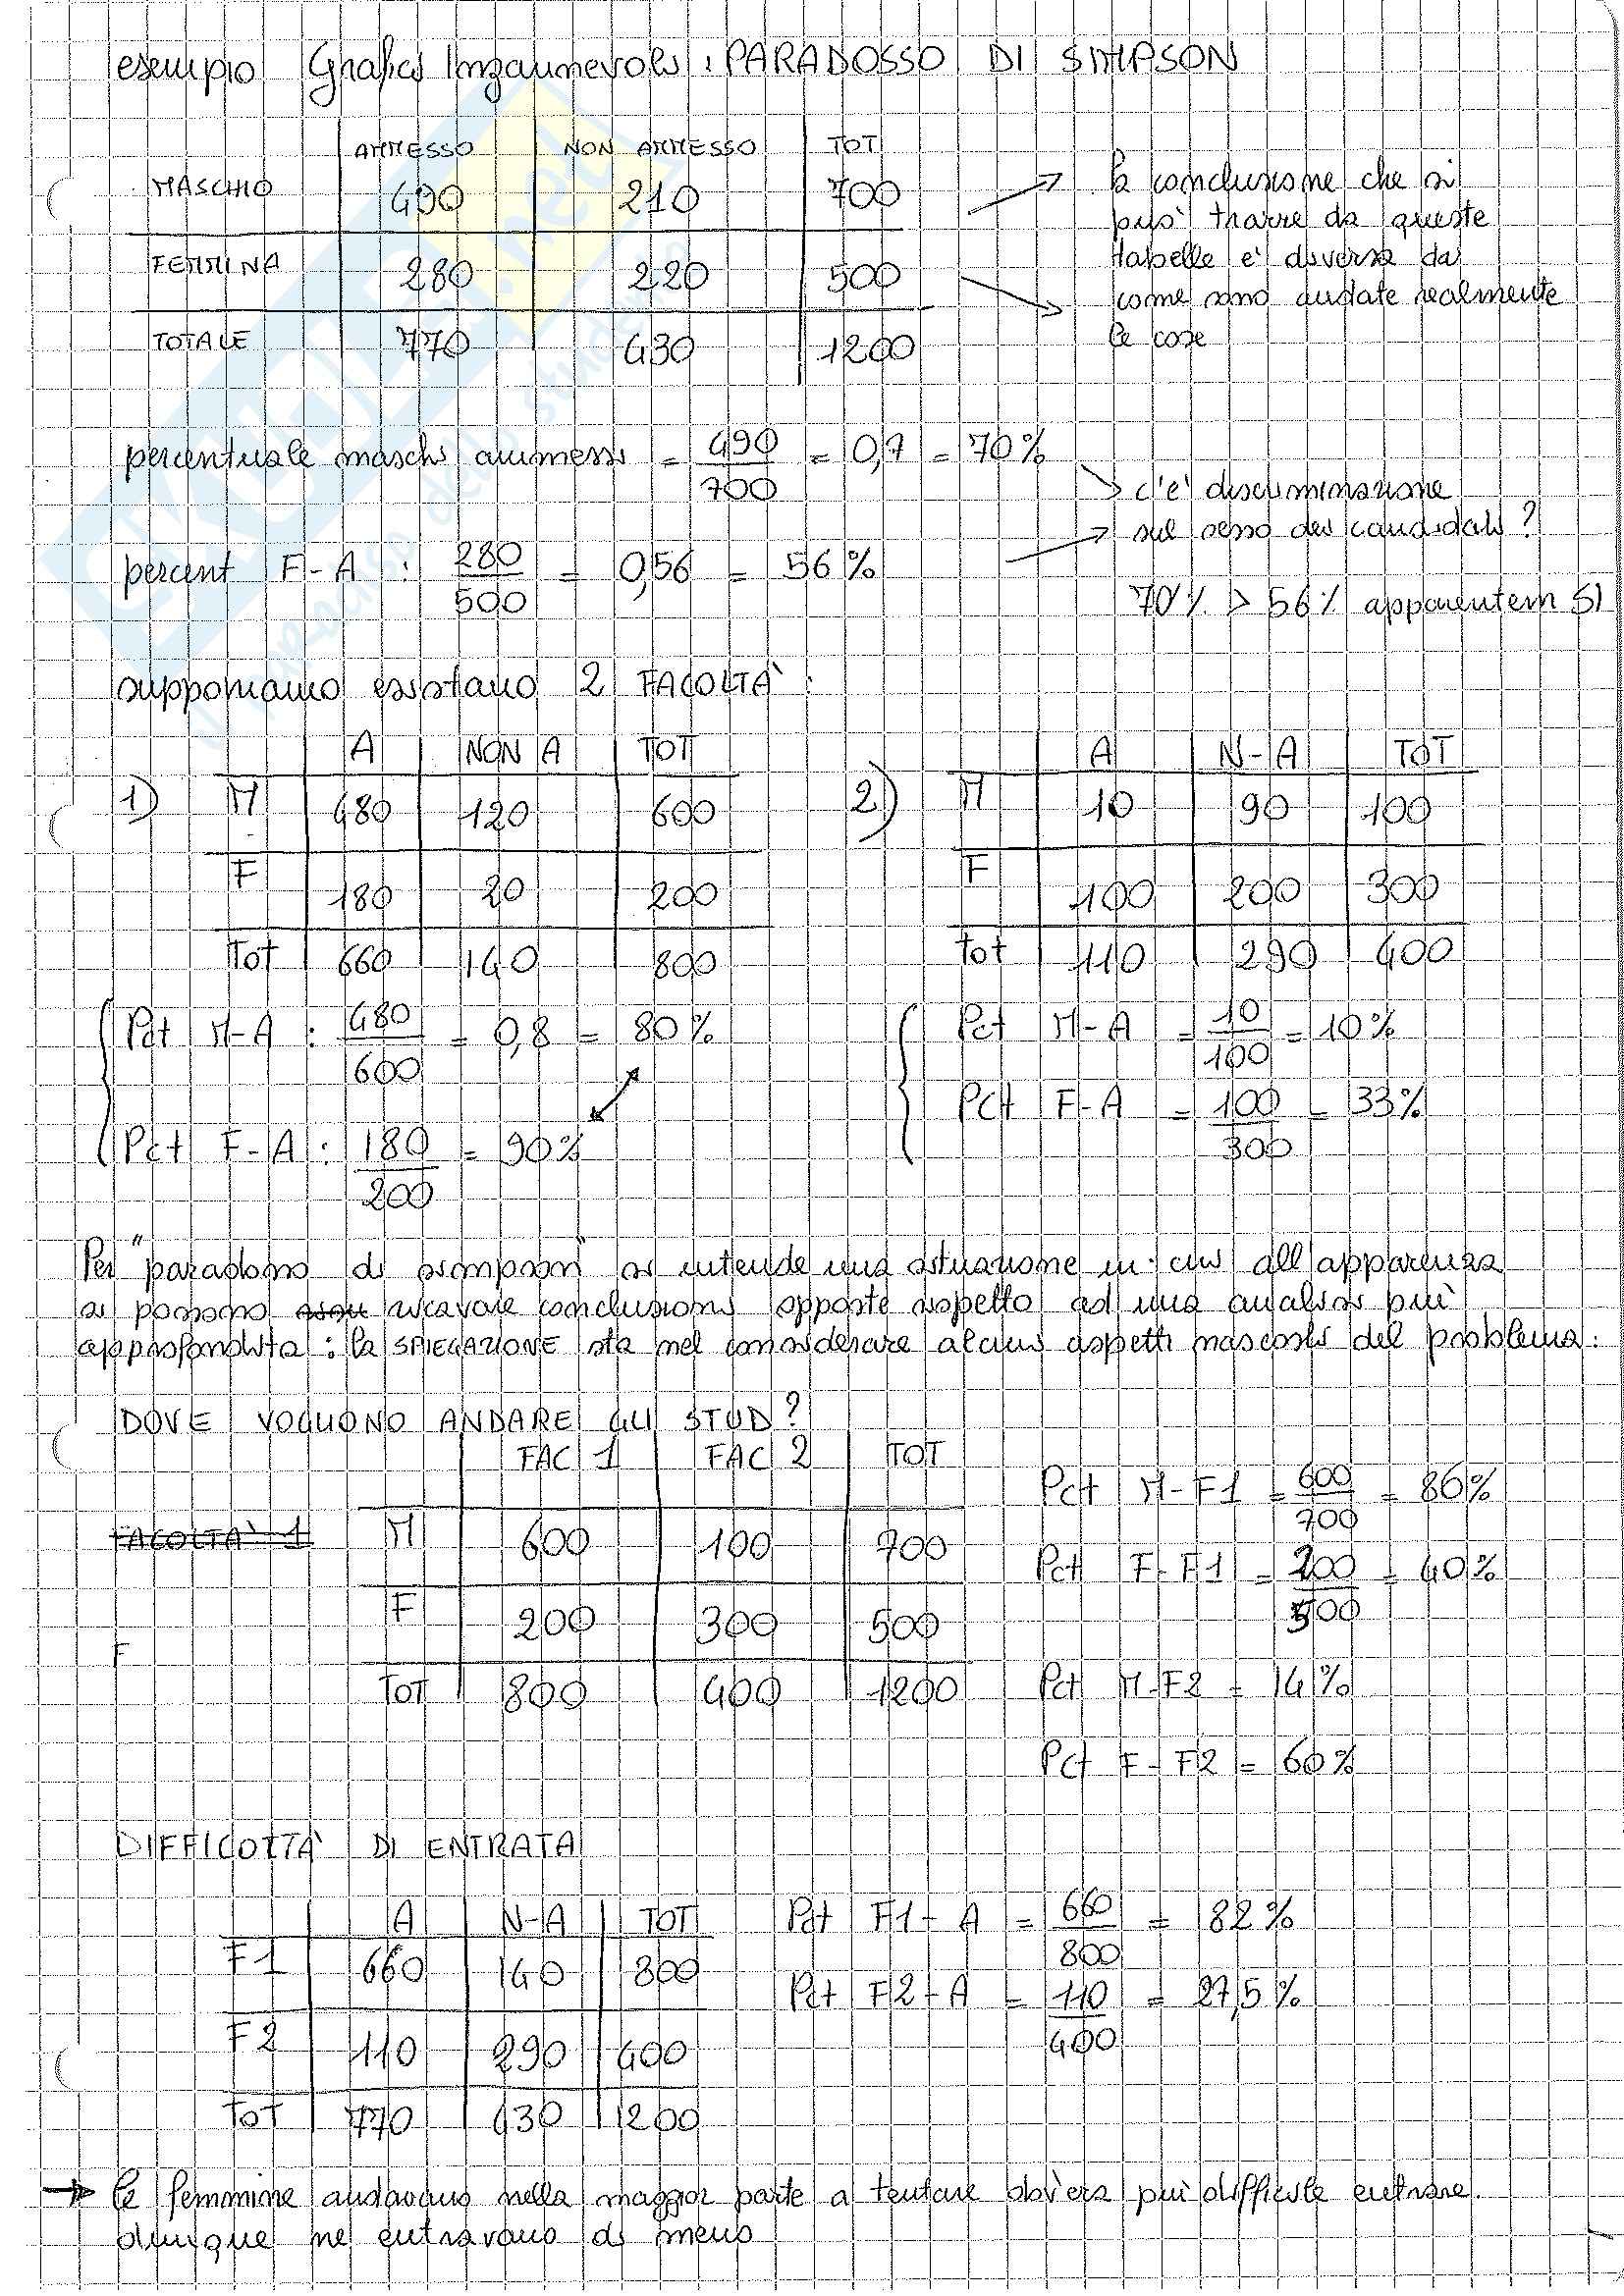 esempio Grafici Ingannevoli: PARADOSSO DI SIMPSON
AMMESSO NON AMMESSO TOT
MASCHIO 490 210 700
FEMMINA 280 220 500
TOTALE 770 430 1200
la conclusione che si
può trarre da queste
tabelle è diversa da
come sono andate realmente
le cose
percentuale maschi ammessi = 490/700 = 0,7 = 70%
percent F-A : 280/500 = 0,56 = 56%
c'è discriminazione
sul sesso dei candidati?
70% > 56% apparentem SI
supponiamo esistano 2 FACOLTÀ:
1) A NON A TOT
M 480 120 600
F 180 20 200
TOT 660 140 800
Pct M-A : 480/600 = 0,8 = 80%
Pct F-A : 180/200 = 90%
2) A N-A TOT
M 10 90 100
F 100 200 300
tot 110 290 400
Pct M-A = 10/100 = 10%
Pct F-A = 100/300 = 33%
Per "paradosso di simpson" si intende una situazione in cui all'apparenza
si possono ricavare conclusioni opposte rispetto ad una analisi più
approfondita: la SPIEGAZIONE sta nel considerare alcuni aspetti nascosti del problema:
DOVE VOGLIONO ANDARE GLI STUD?
FAC 1 FAC 2 TOT
FACOLTÀ 1
M 600 100 700
F 200 300 500
F
TOT 800 400 1200
Pct M-F1 = 600/700 = 86%
Pct F-F1 = 200/500 = 40%
Pct M-F2 = 14%
Pct F-F2 = 60%
DIFFICOLTÀ DI ENTRATA
A N-A TOT
F1 660 140 800
F2 110 290 400
TOT 770 430 1200
Pct F1-A = 660/800 = 82%
Pct F2-A = 110/400 = 27,5%
→ le femmine andavano nella maggior parte a tentare dov'era più difficile entrare.
dunque ne entravano di meno